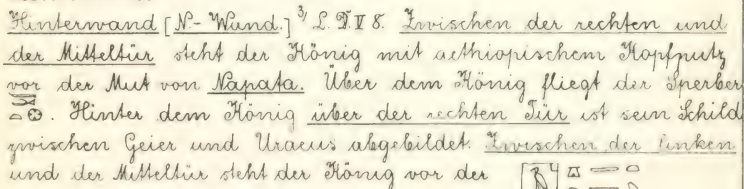 Hinterwand [N.-Wand.] ³/ L. D. V 8. Zwischen der rechten und
der Mitteltür steht der König mit aethiopischem Kopfputz
vor der Mut von Napata. Über dem König fliegt der Sperber
. Hinter dem König über der rechten Tür ist sein Schild
zwischen Geier und Uraeus abgebildet. Zwischen der linken
und der Mitteltür steht der König vor der